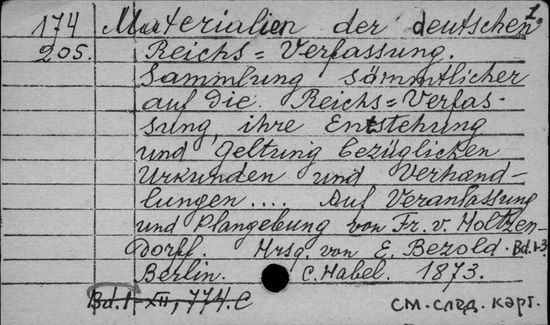 1.
174 Materialien der deutschen
205. Reichs=Verfassung.
Sammlung sämmtlicher
auf die Reichs=Verfas-
sung, ihre Entstehung
und Geltung bezüglichen
Urkunden und Verhand-
lungen.... Auf Veranlassung
und Plangebung von Fr. v. Holtzen-
dorff. Hrsg. von E. Bezold. Bd. 1-3
Berlin. C. Habel. 1873.
Bd. 1 - XII, 774.c
см. след. карт.